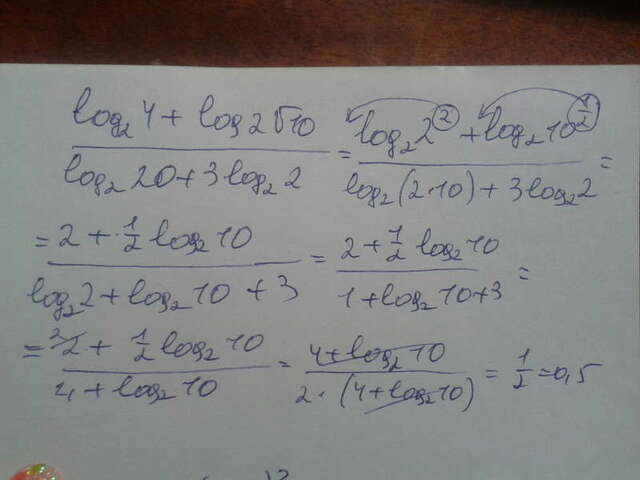 log₂4 + log₂√10 / log₂20 + 3log₂2 = log₂2² + log₂10^(1/2) / log₂(2·10) + 3log₂2 =
= 2 + ·1/2 log₂10 / log₂2 + log₂10 + 3 = 2 + 1/2 log₂10 / 1 + log₂10 + 3 =
= ²⁄2 + 1/2 log₂10 / 4 + log₂10 = 4 + log₂10 / 2·(4 + log₂10) = 1/2 = 0,5